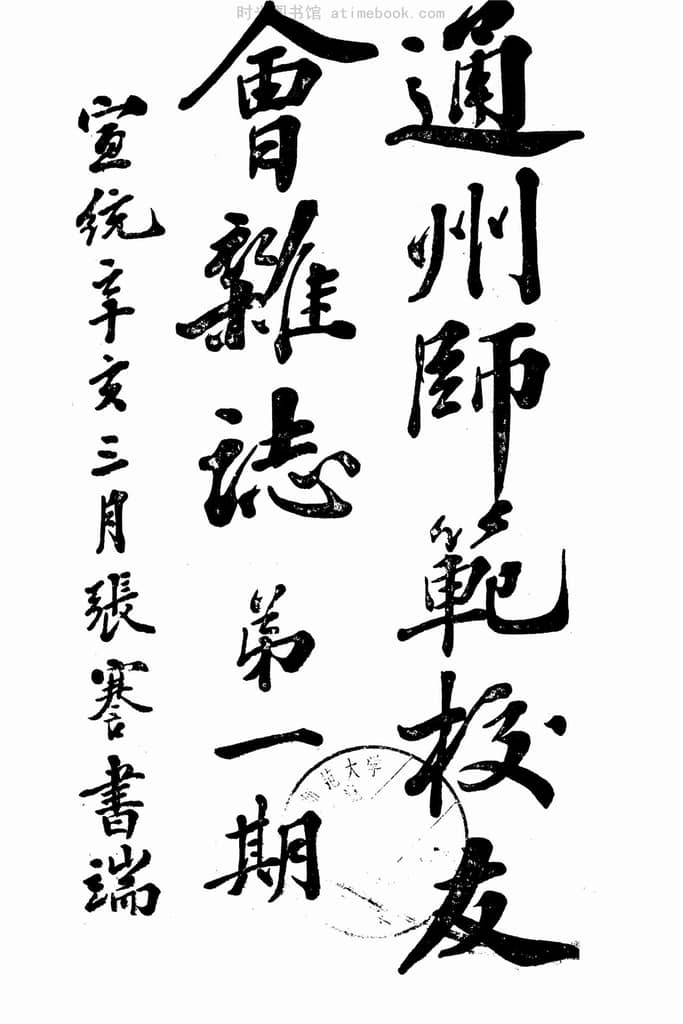 时光图书馆 atimebook.com
通州師範校友
會雜誌 第一期
宣統辛亥三月張謇書端
范大学